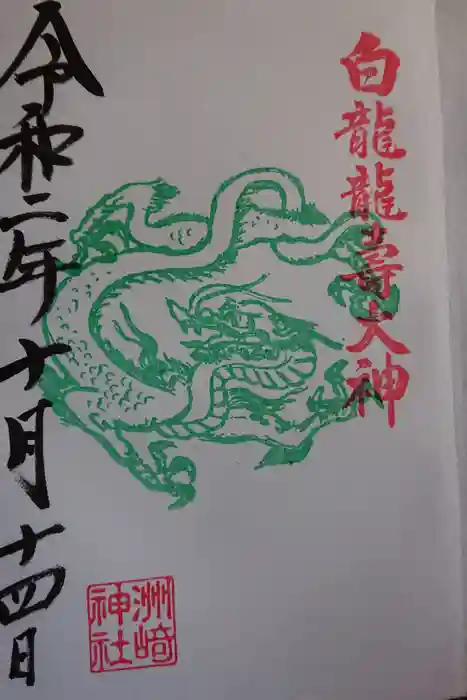 白龍龍壽大神
令和二年十月十四日
洲崎
神社